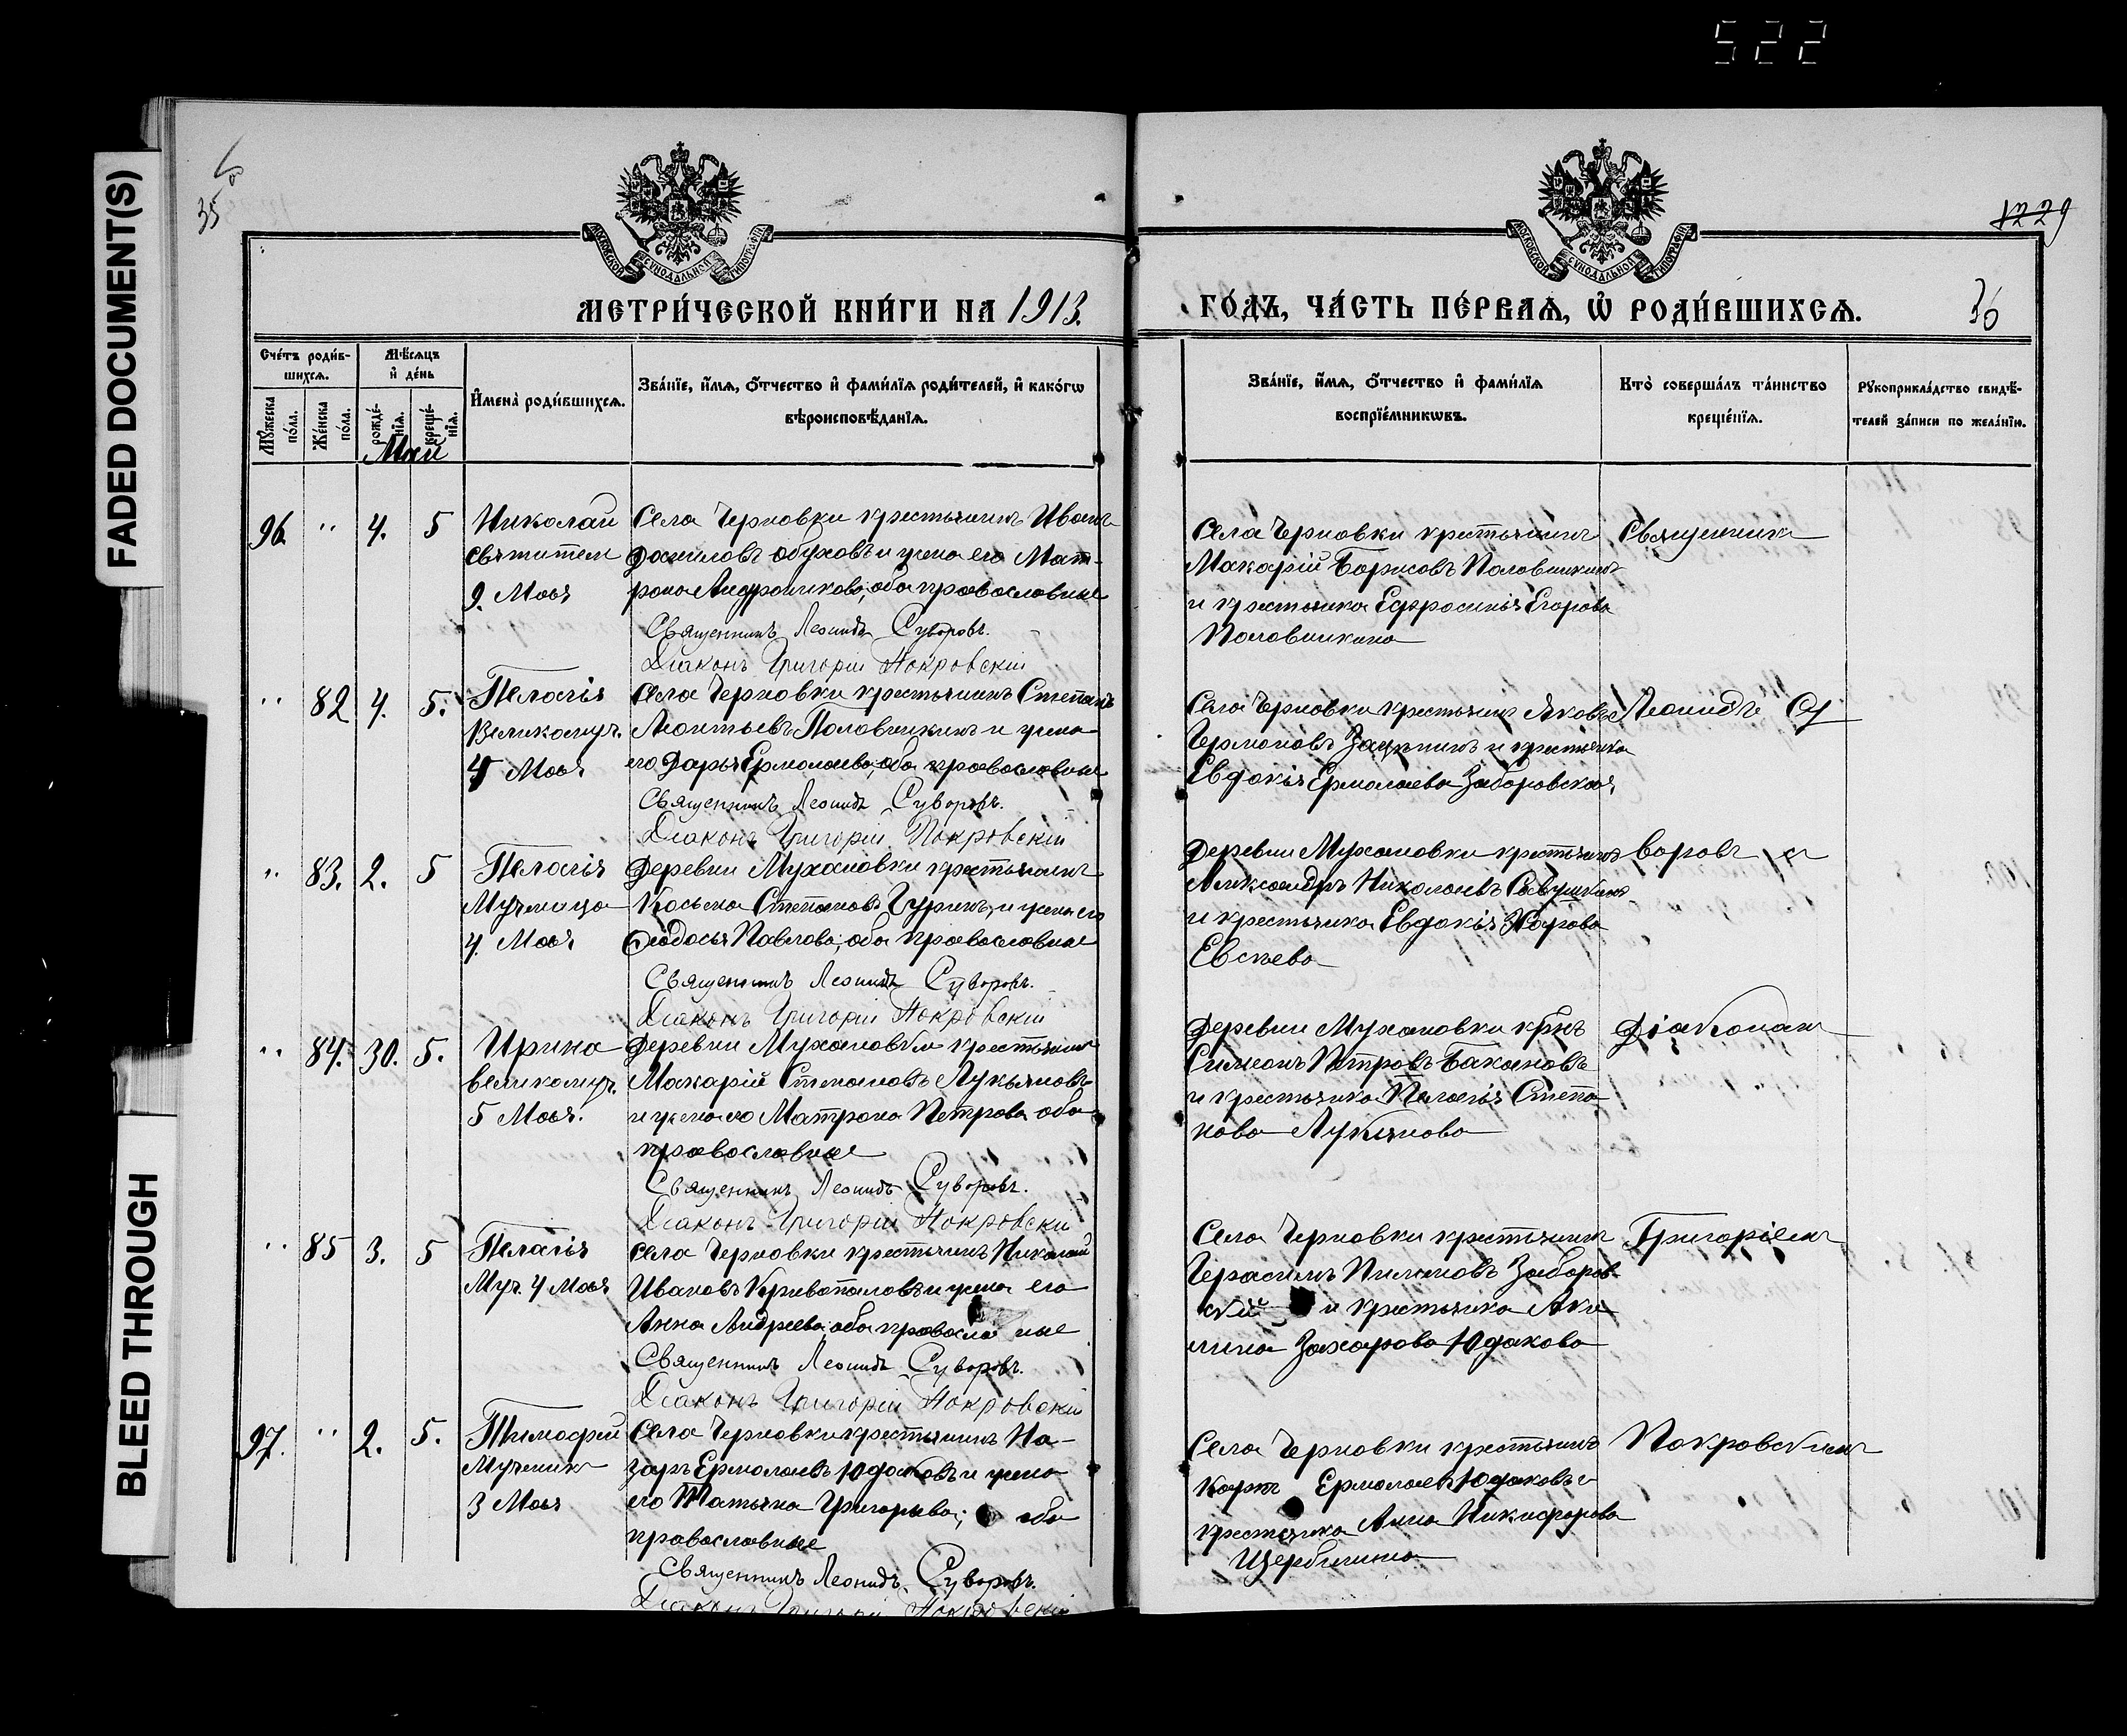 522
FADED DOCUMENT(S)
BLEED THROUGH
35
МОСКОВСКОЙ СѴНОДАЛЬНОЙ ТИПОГРАФІИ
МОСКОВСКОЙ СѴНОДАЛЬНОЙ ТИПОГРАФІИ
1229
МЕТРИ́ЧЕСКОЙ КНИ́ГИ НА 1913.
ГО́ДЪ, ЧА́СТЬ ПЕ́РВАѦ, Ѿ РОДИ́ВШИХСѦ.
36
Сче́тъ роди́в-
шихсѧ.
Мѣ́сѧцъ
и҆ де́нь
Мꙋ́жеска по́ла.
Же́нска по́ла.
рожде́-нїѧ.
креще́-нїѧ.
Май
И҆мена̀ роди́вшихсѧ.
Зва́нїе, и҆́мѧ, ѻ҆́тчество и҆ фами́лїѧ роди́телей, и҆ како́гѡ
вѣроисповѣ́данїѧ.
Зва́нїе, и҆́мѧ, ѻ҆́тчество и҆ фами́лїѧ
воспрїе́мникѡвъ.
Кто̀ соверша́лъ та́инство
креще́нїѧ.
Рꙋкоприкла́дство свидѣ́-
телей за́писи по жела́нїю.
96. " 4. 5
Николай
Святител
9. Мая
Села Черновки крестьянинъ Иванъ
Даниловъ Обуховъ и жена его Мат-
рона Андроникова, оба православные
Священникъ Леонидъ Суворовъ.
Діаконъ Григорій Покровскій
Села Черновки крестьянинъ
Макарій Борисовъ Половинкинъ
и крестьянка Ефросинія Егорова
Половинкина
Священник
" 82 4. 5.
Пелагія
Великомуч.
4 Мая
Села Черновки крестьянинъ Степанъ
Леонтьевъ Половинкинъ и жена
его Дарья Ермолаева, оба православные
Священникъ Леонидъ Суворовъ.
Діаконъ Григорій Покровскій
Села Черновки крестьянин Яковъ
Зацепинъ и крестьянка
Евдокія Ермолаева Заборовская
Леонидъ Су
" 83. 2. 5
Пелагія
Мученица
4. Мая
Деревни Мухановки крестьянинъ
Косьма Степановъ Гуринъ, и жена его
Ѳеодосья Павлова, оба православные
Священникъ Леонидъ Суворовъ.
Діаконъ Григорій Покровскій
Деревни Мухановки крестьянинъ
Александръ Николаевъ Савушкинъ
и крестьянка Евдокія
Евсеева
воровъ и
" 84. 30. 5.
Ирина
великомуч.
5 Мая.
Деревни Мухановки крестьянинъ
Макарій Степановъ Лукьяновъ
и жена его Матрона Петрова оба
православные
Священникъ Леонидъ Суворовъ.
Діаконъ Григорій Покровскій
Деревни Мухановки крнъ
Симеонъ Петровъ Бакановъ
и крестьянка Пелагія Степа-
нова Лукьянова
Діаконам
" 85 3. 5
Пелагія
Муч. 4 Мая
Села Черновки крестьянинъ Николай
Ивановъ Кривопаловъ и жена его
Анна Андреева, оба правосла ные
Священникъ Леонидъ Суворовъ.
Діаконъ Григорій Покровскій
Села Черновки крестьянинъ
Герасимъ Заборов-
скій и крестьянка Аки-
лина Захарова Юдакова
Григоріем
97. " 2. 5.
Тимофей
Мученик
3 Мая
Села Черновки крестьянинъ На-
заръ Ермолаевъ Юдаковъ и жена
его Татьяна Григорьева; оба
православные
Священникъ Леонидъ Суворовъ.
Діаконъ Григорій Покровскій
Села Черновки крестьянинъ
Карпъ Ермолаевъ Юдаковъ и
крестьянка Анна Никифорова
Щербинина
Покровским